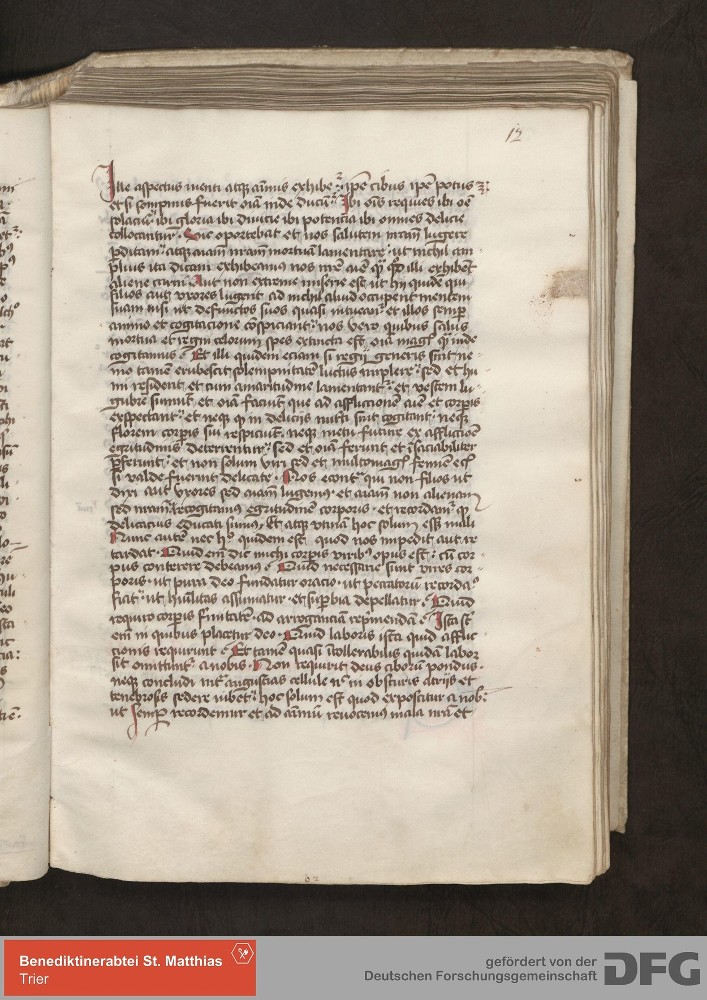 12
Ille aspectus menti atq; animus exhibe ipe cibus ipe potus
et si sompnus fuerit oia inde Ibi ois requies ibi oe
solaciu ibi gloria ibi divicie ibi potencia ibi omnes delicie
collocantur Sic oportebat et nos salutem nram lugere
pditam atq; aiam nram mortuam lamentare ut nichil am
plius ita dicam exhibeamus nos illi exhibet
aliene carni Aut non extreme miserie est ut hii quide qui
filios aut vxores lugent ad nichil aliud occupent mentem
suam nisi ut defunctos suos quasi intueant et illos semp
animo et cogitacione conspiciant nos vero quibus salus
mortua et regni celorum spes extincta est oia magis inde
cogitamus Et illi quidem eciam si regii generis sint ne
mo tamen erubescit solempnitate luctus implere sed et hu
mi resident et cum amaritudine lamentant et vestem lu
gubre sumut et oia faciunt que ad afflictionem et corpis
exspectant et neq; in deliciis nutriti sint cogitant neq;
florem corpis sui respiciut neq; metu future ex afflictioe
egritudinis deterrentur sed et oia ferunt et isaciabiliter
pferunt et non solum viri sed et multomagis femine
si valde fuerint delicate Nos econtra qui non filios ut
dixi aut vxores sed aiam lugemus et aiam non alienam
sed nram recogitamus egritudinem corporis et recordamur
delicacius educati sumus Et atq; utinam hoc solum esset mali
Nunc autem nec hoc quidem est quod nos impedit aut re
tardat Quid em dic michi corpis viribus opus est cu cor
pus conterere debeamus Quid necessarie sunt vires cor
poris ut pura deo fundatur oracio ut peccatorum recordacio
fiat ut humilitas assumatur et supbia depellatur Quid
requiro corpis firmitate ad arroganciam repmendam Ista st
em in quibus placetur deo Quid laboris ista quid afflic
tionis requirunt Et tamen quasi itollerabilis quidam labor
sit omittunt a nobis Non requirit deus ciborum pondus
neq; concludi int angustias cellule n in obscuris atriis et
tenebrosis sedere iubet hoc solum est quod exposcitur a nob
ut semp recordemur et ad animum revocemus mala nra et
Benediktinerabtei St. Matthias
Trier
gefördert von der
Deutschen Forschungsgemeinschaft
DFG